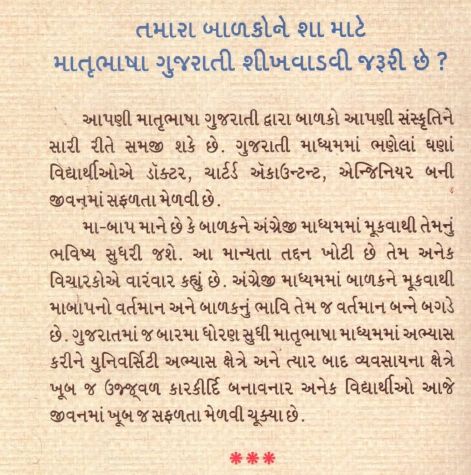 તમારા બાળકોને શા માટે
માતૃભાષા ગુજરાતી શીખવાડવી જરૂરી છે ?
આપણી માતૃભાષા ગુજરાતી દ્વારા બાળકો આપણી સંસ્કૃતિને
સારી રીતે સમજી શકે છે. ગુજરાતી માધ્યમમાં ભણેલાં ઘણાં
વિદ્યાર્થીઓએ ડૉક્ટર, ચાર્ટર્ડ ઍકાઉન્ટન્ટ, એન્જિનિયર બની
જીવનમાં સફળતા મેળવી છે.
મા-બાપ માને છે કે બાળકને અંગ્રેજી માધ્યમમાં મૂકવાથી તેમનું
ભવિષ્ય સુધરી જશે. આ માન્યતા તદ્દન ખોટી છે તેમ અનેક
વિચારકોએ વારંવાર કહ્યું છે. અંગ્રેજી માધ્યમમાં બાળકને મૂકવાથી
માબાપનો વર્તમાન અને બાળકનું ભાવિ તેમ જ વર્તમાન બન્ને બગડે
છે. ગુજરાતમાં જ બારમા ધોરણ સુધી માતૃભાષા માધ્યમમાં અભ્યાસ
કરીને યુનિવર્સિટી અભ્યાસ ક્ષેત્રે અને ત્યાર બાદ વ્યવસાયના ક્ષેત્રે
ખૂબ જ ઉજ્જૂવળ કારકીર્દિ બનાવનાર અનેક વિદ્યાર્થીઓ આજે
જીવનમાં ખૂબ જ સફળતા મેળવી ચૂક્યા છે.
***